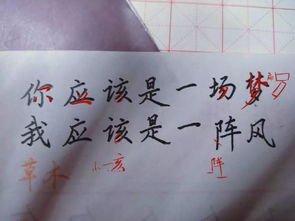 你应该是一场梦
我应该是一阵风
草木 亥 阵